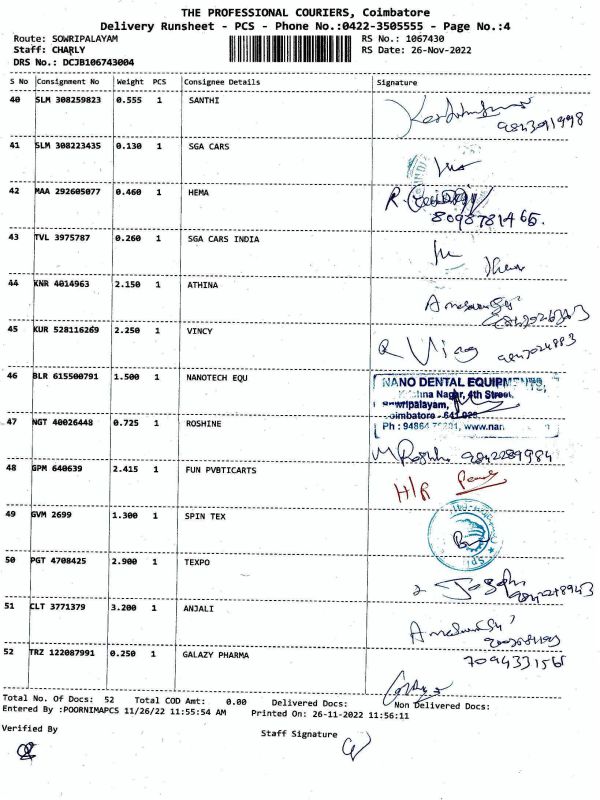 THE PROFESSIONAL COURIERS, Coimbatore
Delivery Runsheet - PCS - Phone No.:0422-3505555 - Page No.:4
Route: SOWRIPALAYAM RS No.: 1067430
Staff: CHARLY RS Date: 26-Nov-2022
DRS No.: DCJB106743004
S No Consignment No Weight PCS Consignee Details Signature
40 SLM 308259823 0.555 1 SANTHI
9843091998
41 SLM 308223435 0.130 1 SGA CARS
42 MAA 292605077 0.460 1 HEMA
8098781465.
43 TVL 3975787 0.260 1 SGA CARS INDIA
44 KNR 4014963 2.150 1 ATHINA
45 KUR 528116269 2.250 1 VINCY
46 BLR 615500791 1.500 1 NANOTECH EQU
NANO DENTAL EQUIPMENTS,
Nagar, 4th Street,
47 NGT 40026448 0.725 1 ROSHINE
Ph : www.nan
9842289984
48 GPM 640639 2.415 1 FUN PVBTICARTS
H/R
49 GVM 2699 1.300 1 SPIN TEX
50 PGT 4708425 2.900 1 TEXPO
51 CLT 3771379 3.200 1 ANJALI
52 TRZ 122087991 0.250 1 GALAZY PHARMA
Total No. Of Docs: 52 Total COD Amt: 0.00 Delivered Docs: Non Delivered Docs:
Entered By :POORNIMAPCS 11/26/22 11:55:54 AM Printed On: 26-11-2022 11:56:11
Verified By Staff Signature